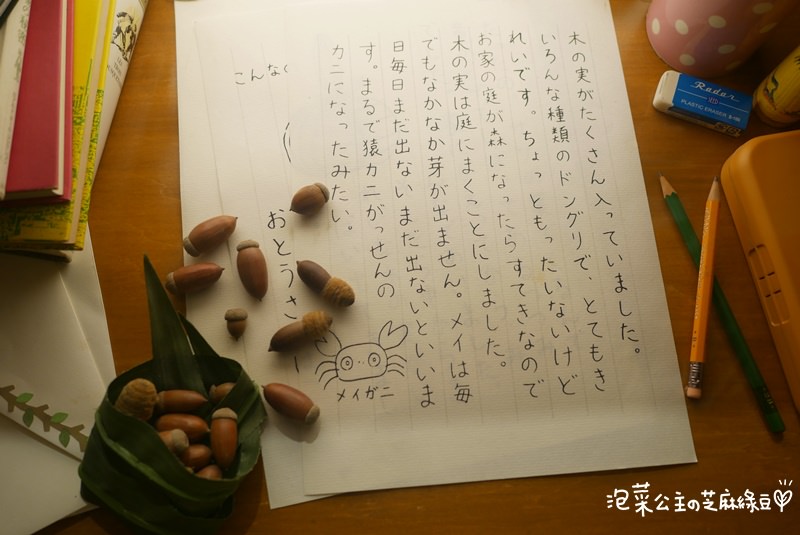 木の実がたくさん入っていました。
いろんな種類のドングリで、とてもき
れいです。ちょっともったいないけど
お家の庭が森になったらすてきなので
木の実は庭にまくことにしました。
でもなかなか芽が出ません。メイは毎
日毎日まだ出ないまだ出ないといいま
す。まるで猿カニがっせんの
カニになったみたい。
メイガニ
おとうさ
こんなく
Radar
PLASTIC ERASER
泡菜公主の芝麻綠豆